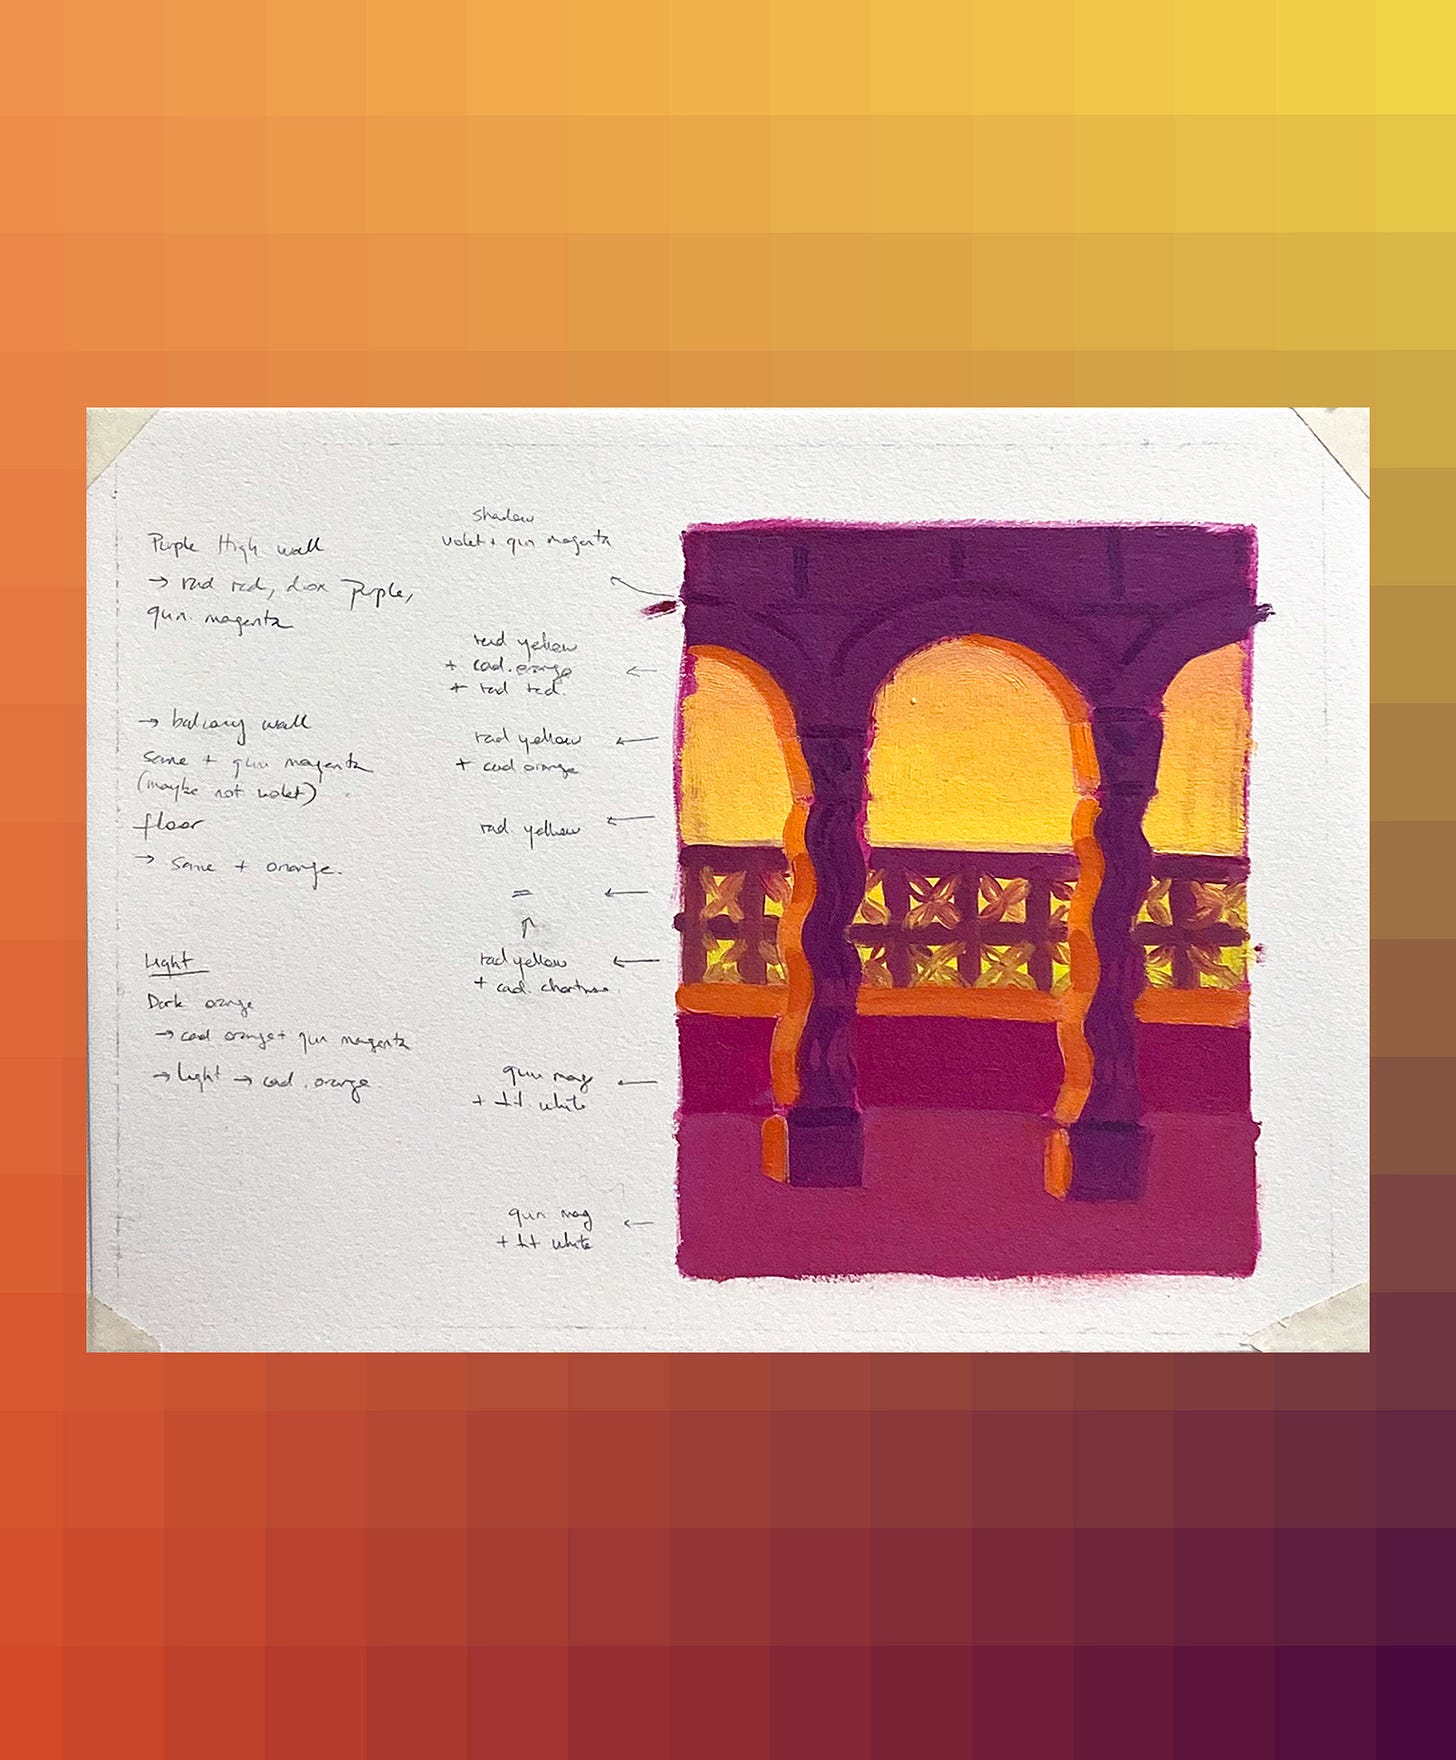 Purple High wall
→ rad red, diox purple,
qun. magenta
→ balcony wall
same + qun magenta
(maybe not violet)
floor
→ same + orange.
Light
Dark orange
→ cad orange + qun magenta
→ light → cad. orange.
shadow
violet + qun magenta
rad yellow
+ cad. orange
+ rad red.
rad yellow
+ cad orange
rad yellow
=
rad yellow
+ cad. chartreuse.
qun mag
+ tit. white
qun mag
+ tit white